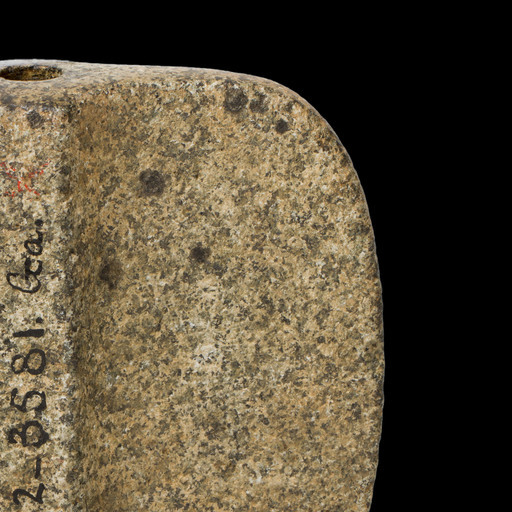 2-3581. Ga.